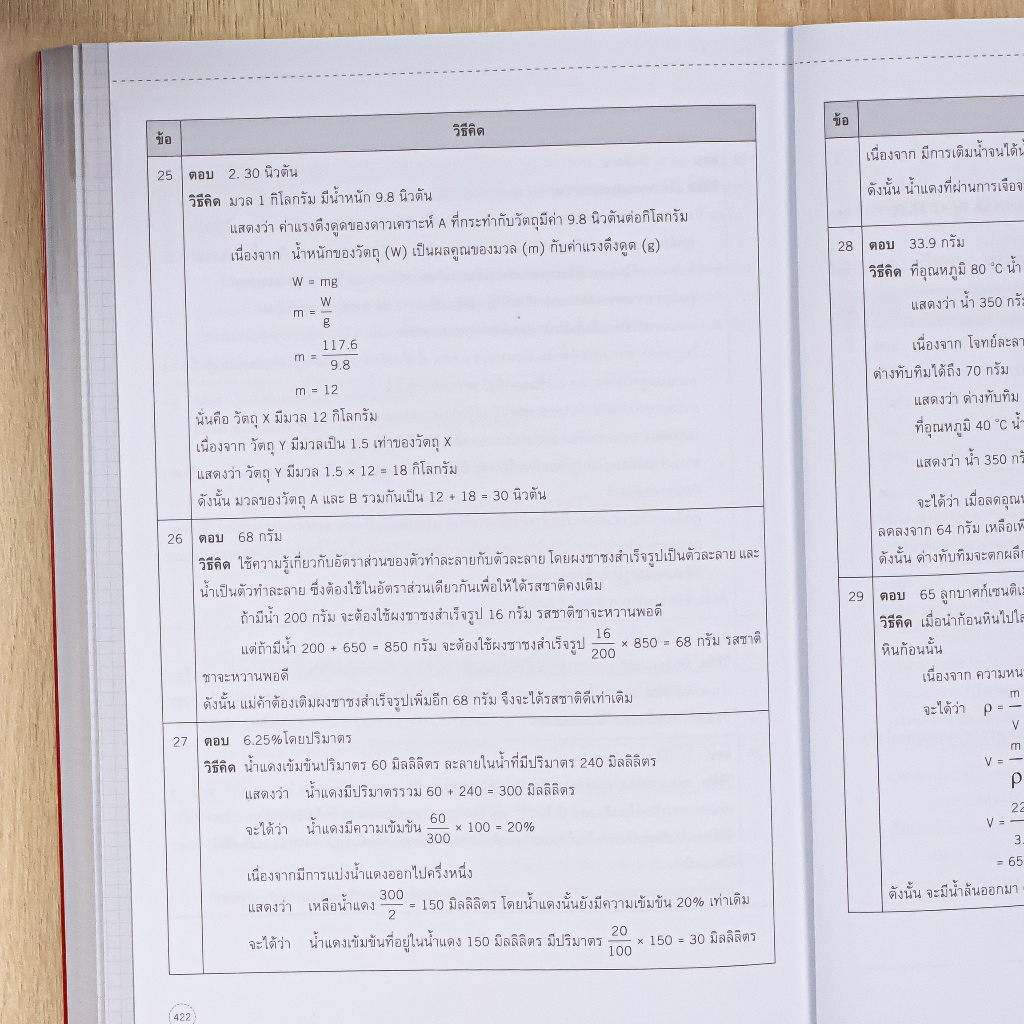 ข้อ วิธีคิด
25 ตอบ 2. 30 นิวตัน
วิธีคิด มวล 1 กิโลกรัม มีน้ำหนัก 9.8 นิวตัน
แสดงว่า ค่าแรงดึงดูดของดาวเคราะห์ A ที่กระทำกับวัตถุมีค่า 9.8 นิวตันต่อกิโลกรัม
เนื่องจาก น้ำหนักของวัตถุ (W) เป็นผลคูณของมวล (m) กับค่าแรงดึงดูด (g)
W = mg
m = W/g
m = 117.6/9.8
m = 12
นั่นคือ วัตถุ X มีมวล 12 กิโลกรัม
เนื่องจาก วัตถุ Y มีมวลเป็น 1.5 เท่าของวัตถุ X
แสดงว่า วัตถุ Y มีมวล 1.5 × 12 = 18 กิโลกรัม
ดังนั้น มวลของวัตถุ A และ B รวมกันเป็น 12 + 18 = 30 นิวตัน
26 ตอบ 68 กรัม
วิธีคิด ใช้ความรู้เกี่ยวกับอัตราส่วนของตัวทำละลายกับตัวละลาย โดยผงชาชงสำเร็จรูปเป็นตัวละลาย และ
น้ำเป็นตัวทำละลาย ซึ่งต้องใช้ในอัตราส่วนเดียวกันเพื่อให้ได้รสชาติคงเดิม
ถ้ามีน้ำ 200 กรัม จะต้องใช้ผงชาชงสำเร็จรูป 16 กรัม รสชาติชาจะหวานพอดี
แต่ถ้ามีน้ำ 200 + 650 = 850 กรัม จะต้องใช้ผงชาชงสำเร็จรูป 16/200 × 850 = 68 กรัม รสชาติ
ชาจะหวานพอดี
ดังนั้น แม่ค้าต้องเติมผงชาชงสำเร็จรูปเพิ่มอีก 68 กรัม จึงจะได้รสชาติดีเท่าเดิม
27 ตอบ 6.25%โดยปริมาตร
วิธีคิด น้ำแดงเข้มข้นปริมาตร 60 มิลลิลิตร ละลายในน้ำที่มีปริมาตร 240 มิลลิลิตร
แสดงว่า น้ำแดงมีปริมาตรรวม 60 + 240 = 300 มิลลิลิตร
จะได้ว่า น้ำแดงมีความเข้มข้น 60/300 × 100 = 20%
เนื่องจากมีการแบ่งน้ำแดงออกไปครึ่งหนึ่ง
แสดงว่า เหลือน้ำแดง 300/2 = 150 มิลลิลิตร โดยน้ำแดงนั้นยังมีความเข้มข้น 20% เท่าเดิม
จะได้ว่า น้ำแดงเข้มข้นที่อยู่ในน้ำแดง 150 มิลลิลิตร มีปริมาตร 20/100 × 150 = 30 มิลลิลิตร
422
ข้อ
เนื่องจาก มีการเติมน้ำจนได้
ดังนั้น น้ำแดงที่ผ่านการเจือ
28 ตอบ 33.9 กรัม
วิธีคิด ที่อุณหภูมิ 80 °C น้ำ
แสดงว่า น้ำ 350
เนื่องจาก โจทย์
ด่างทับทิมได้ถึง 70 กรัม
แสดงว่า ด่างทับทิม
ที่อุณหภูมิ 40 °C น้ำ
แสดงว่า น้ำ 350
จะได้ว่า เมื่อลด
ลดลงจาก 64 กรัม
ดังนั้น ด่างทับทิมจะ
29 ตอบ 65
วิธีคิด เมื่อนำก้อนหินไป
หินก้อนนั้น
เนื่องจาก
จะได้ว่า ρ = m/V
V = m/ρ
V = 22
3.
= 65
ดังนั้น จะมีน้ำล้นออกมา